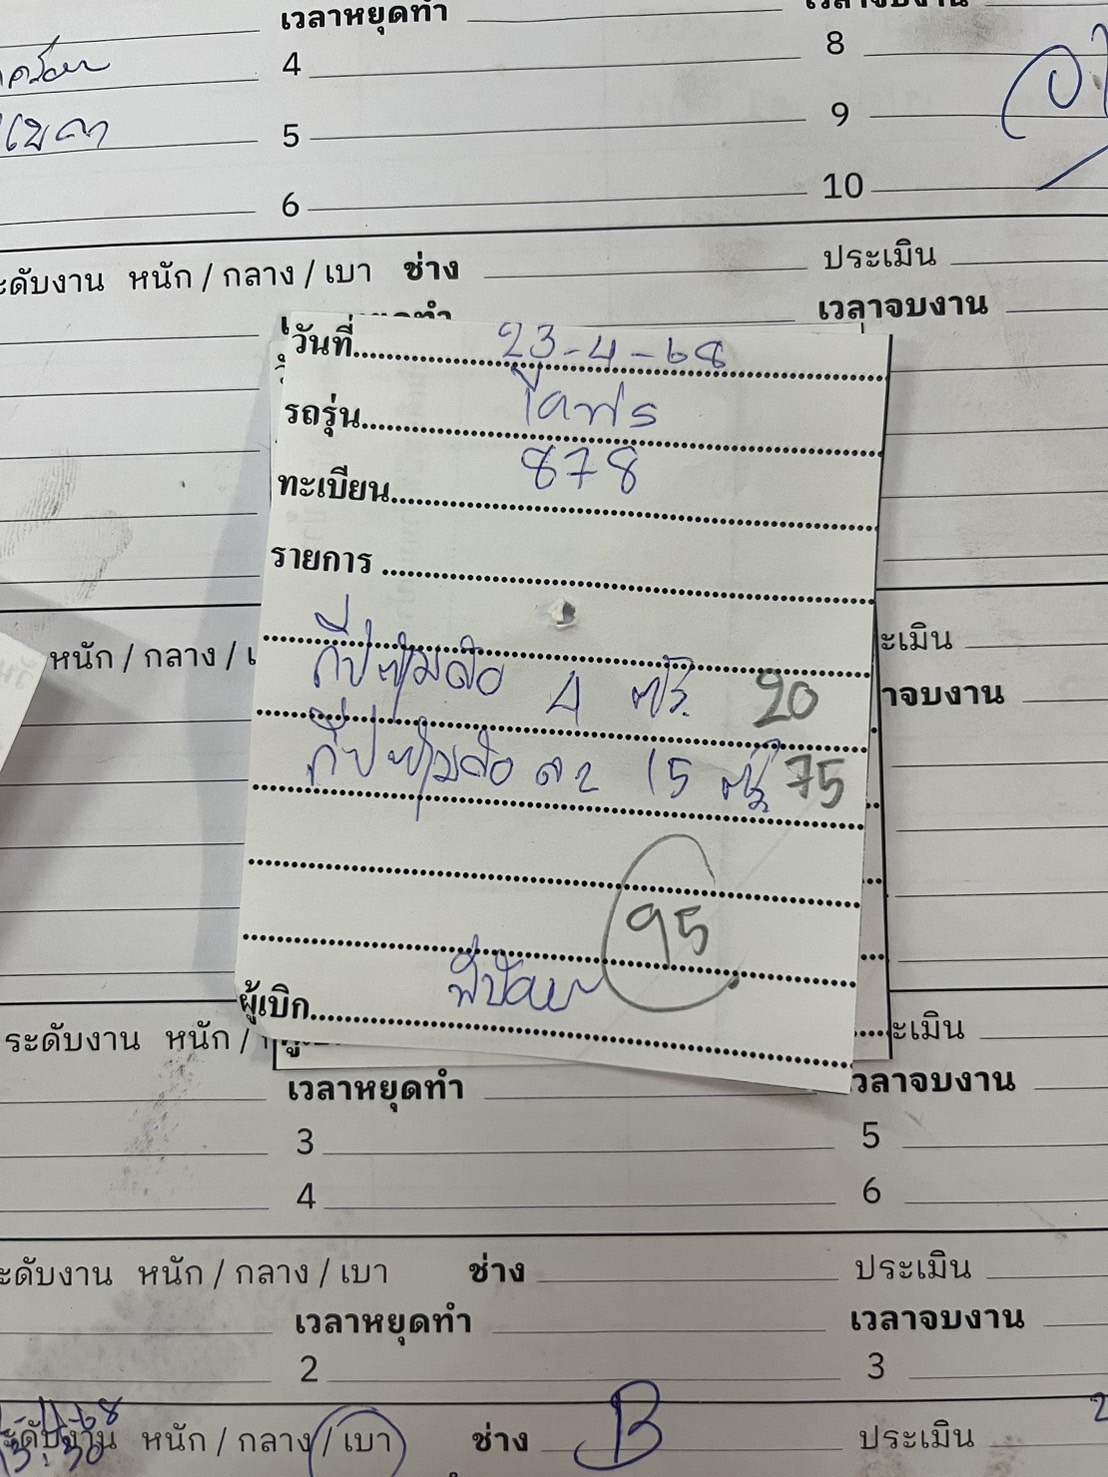 เวลาหยุดทำ
4
8
5
9
6
10
ระดับงาน หนัก / กลาง / เบา ช่าง ประเมิน
เวลาจบงาน
วันที่ 23-4-68
รถรุ่น
ทะเบียน 878
รายการ
กิ๊ปซุ้มล้อ 4 ตัว 20
กิ๊ปซุ้มล้อ 15 ตัว 75
95
ผู้เบิก
หนัก / กลาง /
ะเมิน
าจบงาน
ระดับงาน หนัก /
ะเมิน
เวลาหยุดทำ
วลาจบงาน
3
5
4
6
ะดับงาน หนัก / กลาง / เบา ช่าง ประเมิน
เวลาหยุดทำ เวลาจบงาน
2
3
ะดับงาน หนัก / กลาง / เบา ช่าง B ประเมิน